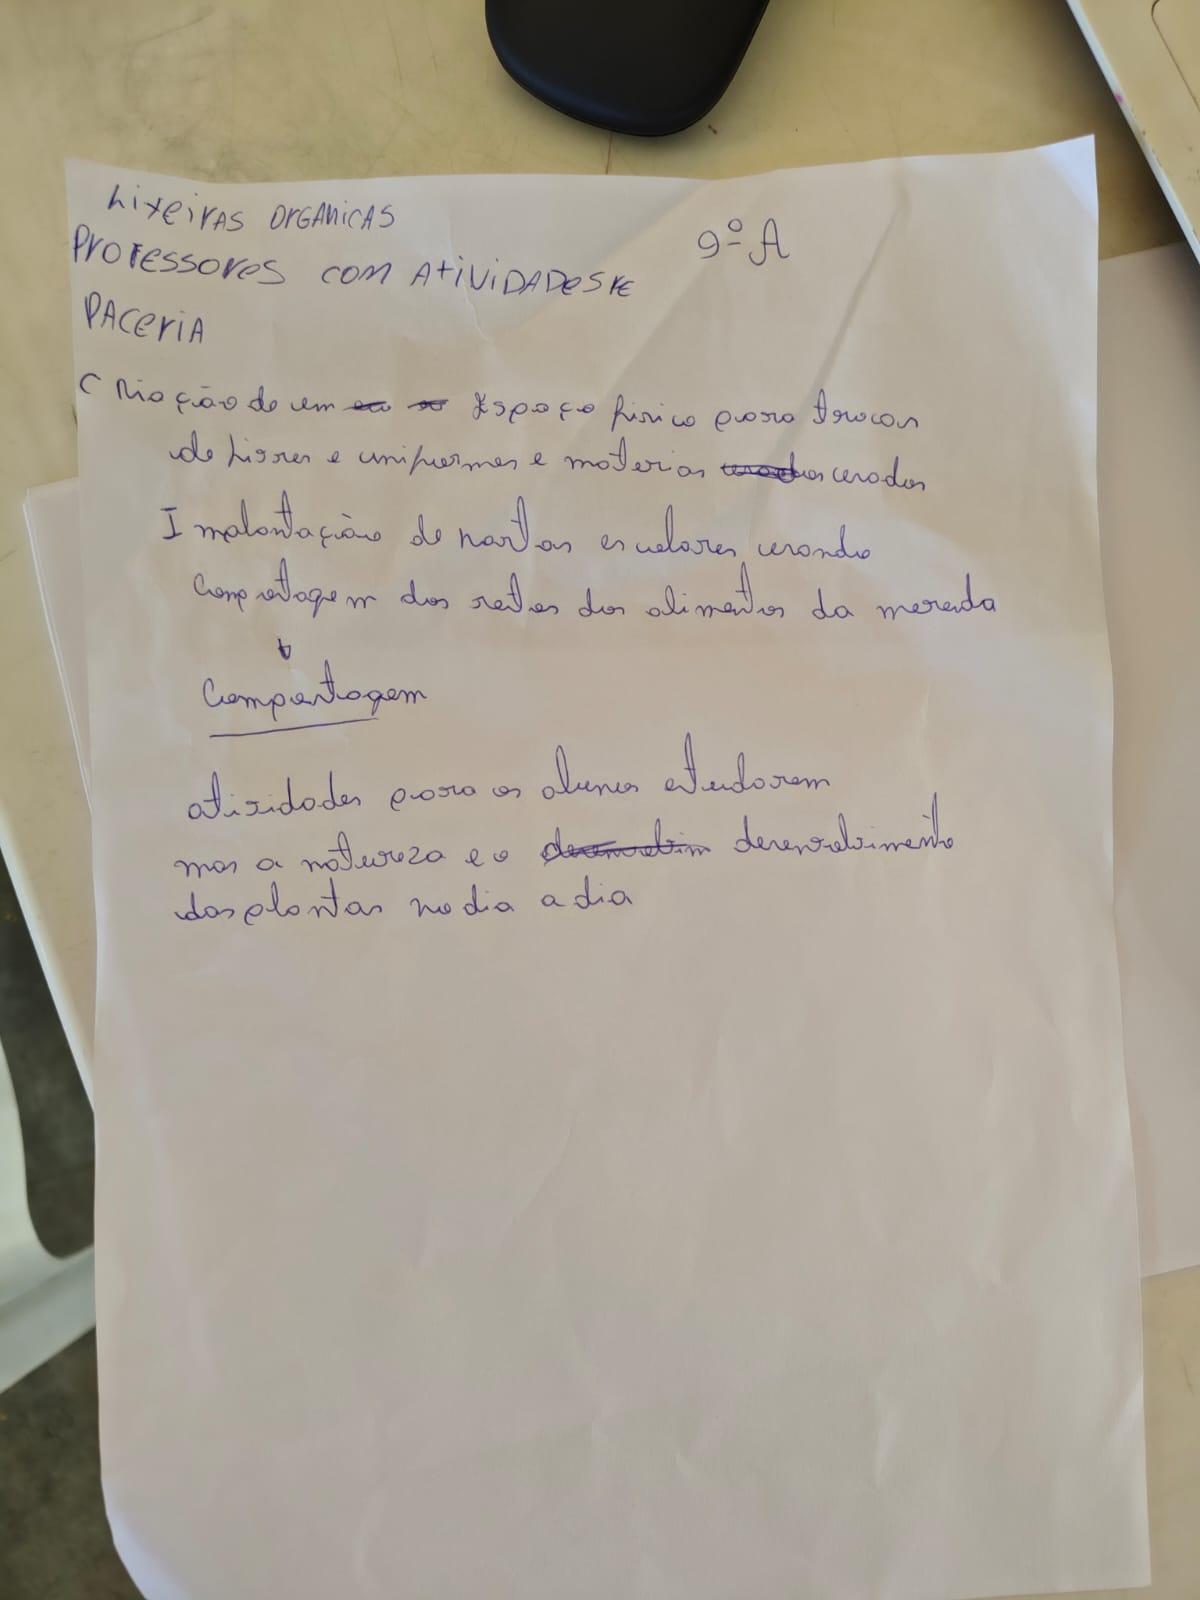 Lixeiras ORGANICAS
9º A
Professores com AtiViDADes DE
PAceriA
Criação de um Espaço fisico para trocas
de livros e uniformes e materias usados
Implantação de hortas escolares usando
Compostagem dos restos dos alimentos da merenda
Compostagem
atividades para os alunos estudarem
mas a natureza e o desenvolvimento
das plantas no dia a dia